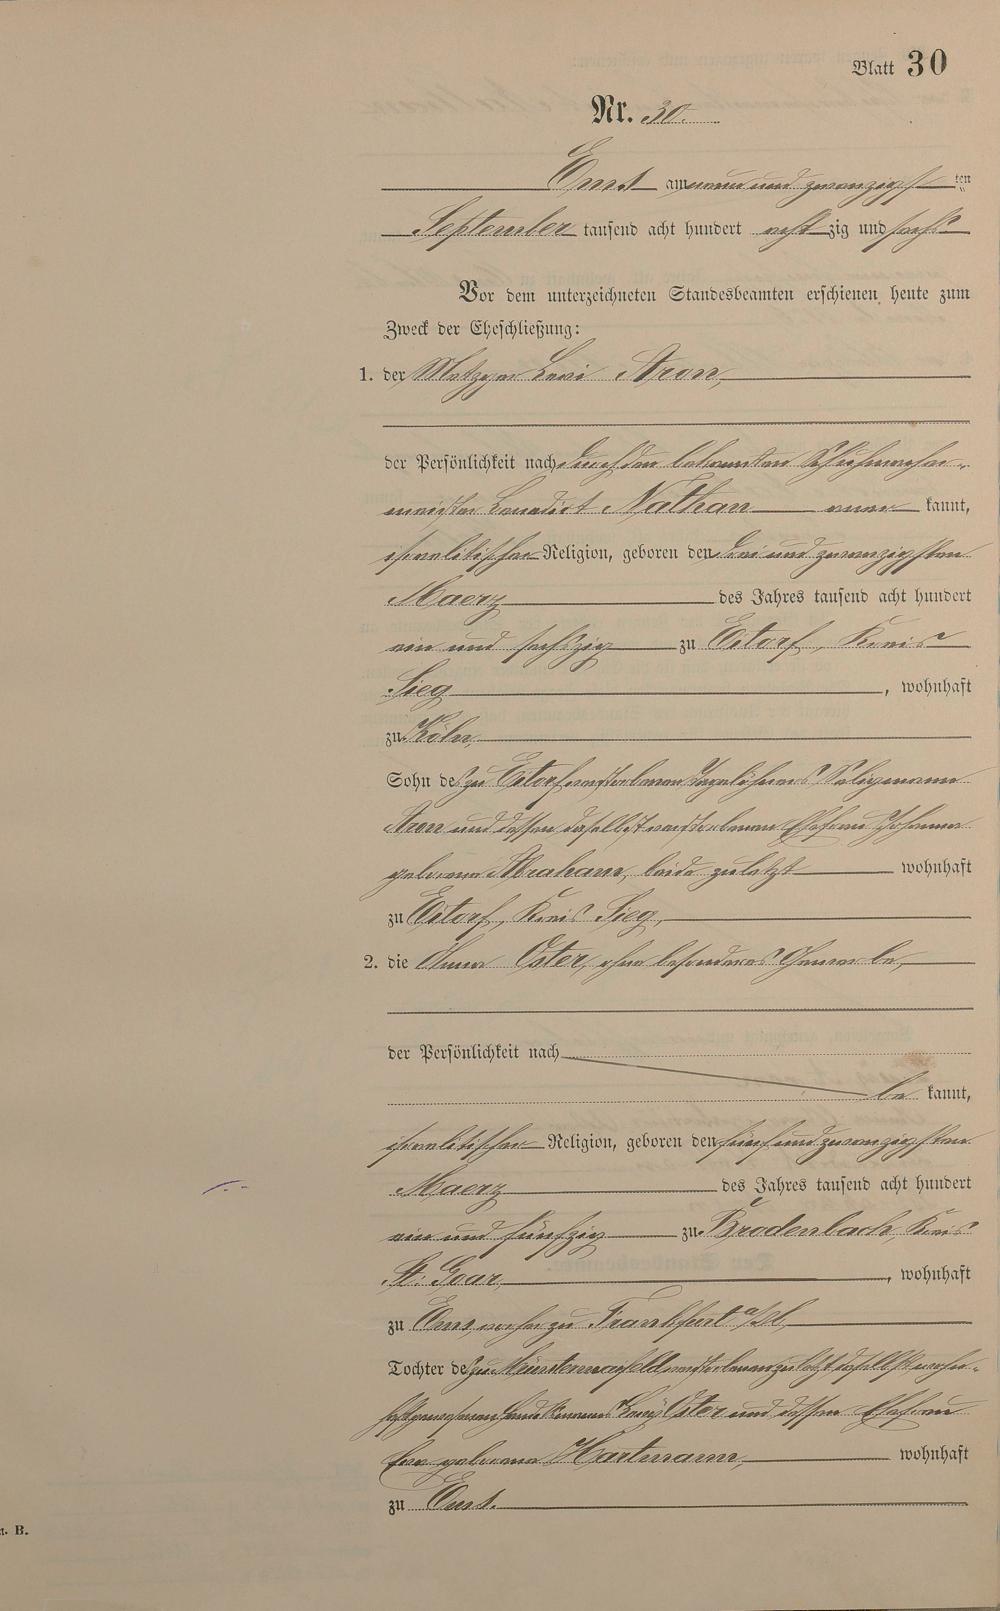 Blatt 30
Nr. 30.
Ems am neun und zwanzigsten
September tausend acht hundert achtzig und sechs
Vor dem unterzeichneten Standesbeamten erschienen heute zum
Zweck der Eheschließung:
1. der Metzger Levi Aron,
der Persönlichkeit nach durch den bekannten Schuhmacher-
meister Benedict Nathan aner kannt,
israelitischer Religion, geboren den drei und zwanzigsten
Maerz des Jahres tausend acht hundert
ein und sechszig zu Eitorf, Kreis
Sieg, wohnhaft
zu Köln,
Sohn des zu Eitorf verstorbenen Tagelöhners Seligmann
Aron und dessen daselbst verstorbenen Ehefrau Johanna
geborene Abraham, beide zuletzt wohnhaft
zu Eitorf, Kreis Sieg,
2. die Anna Oster, ohne besonderes Gewerbe,
der Persönlichkeit nach
be kannt,
israelitischer Religion, geboren den fünf und zwanzigsten
Maerz des Jahres tausend acht hundert
ein und fünfzig zu Brodenbach, Kreis
St. Goar, wohnhaft
zu Ems, vorher zu Frankfurt a/M,
Tochter des zu Münstermaifeld verstorbenen zuletzt daselbst wohn-
haft gewesenen Handelsmannes Oster und dessen Ehefrau
Eva geborene Hartmann, wohnhaft
zu Ems.
. B.